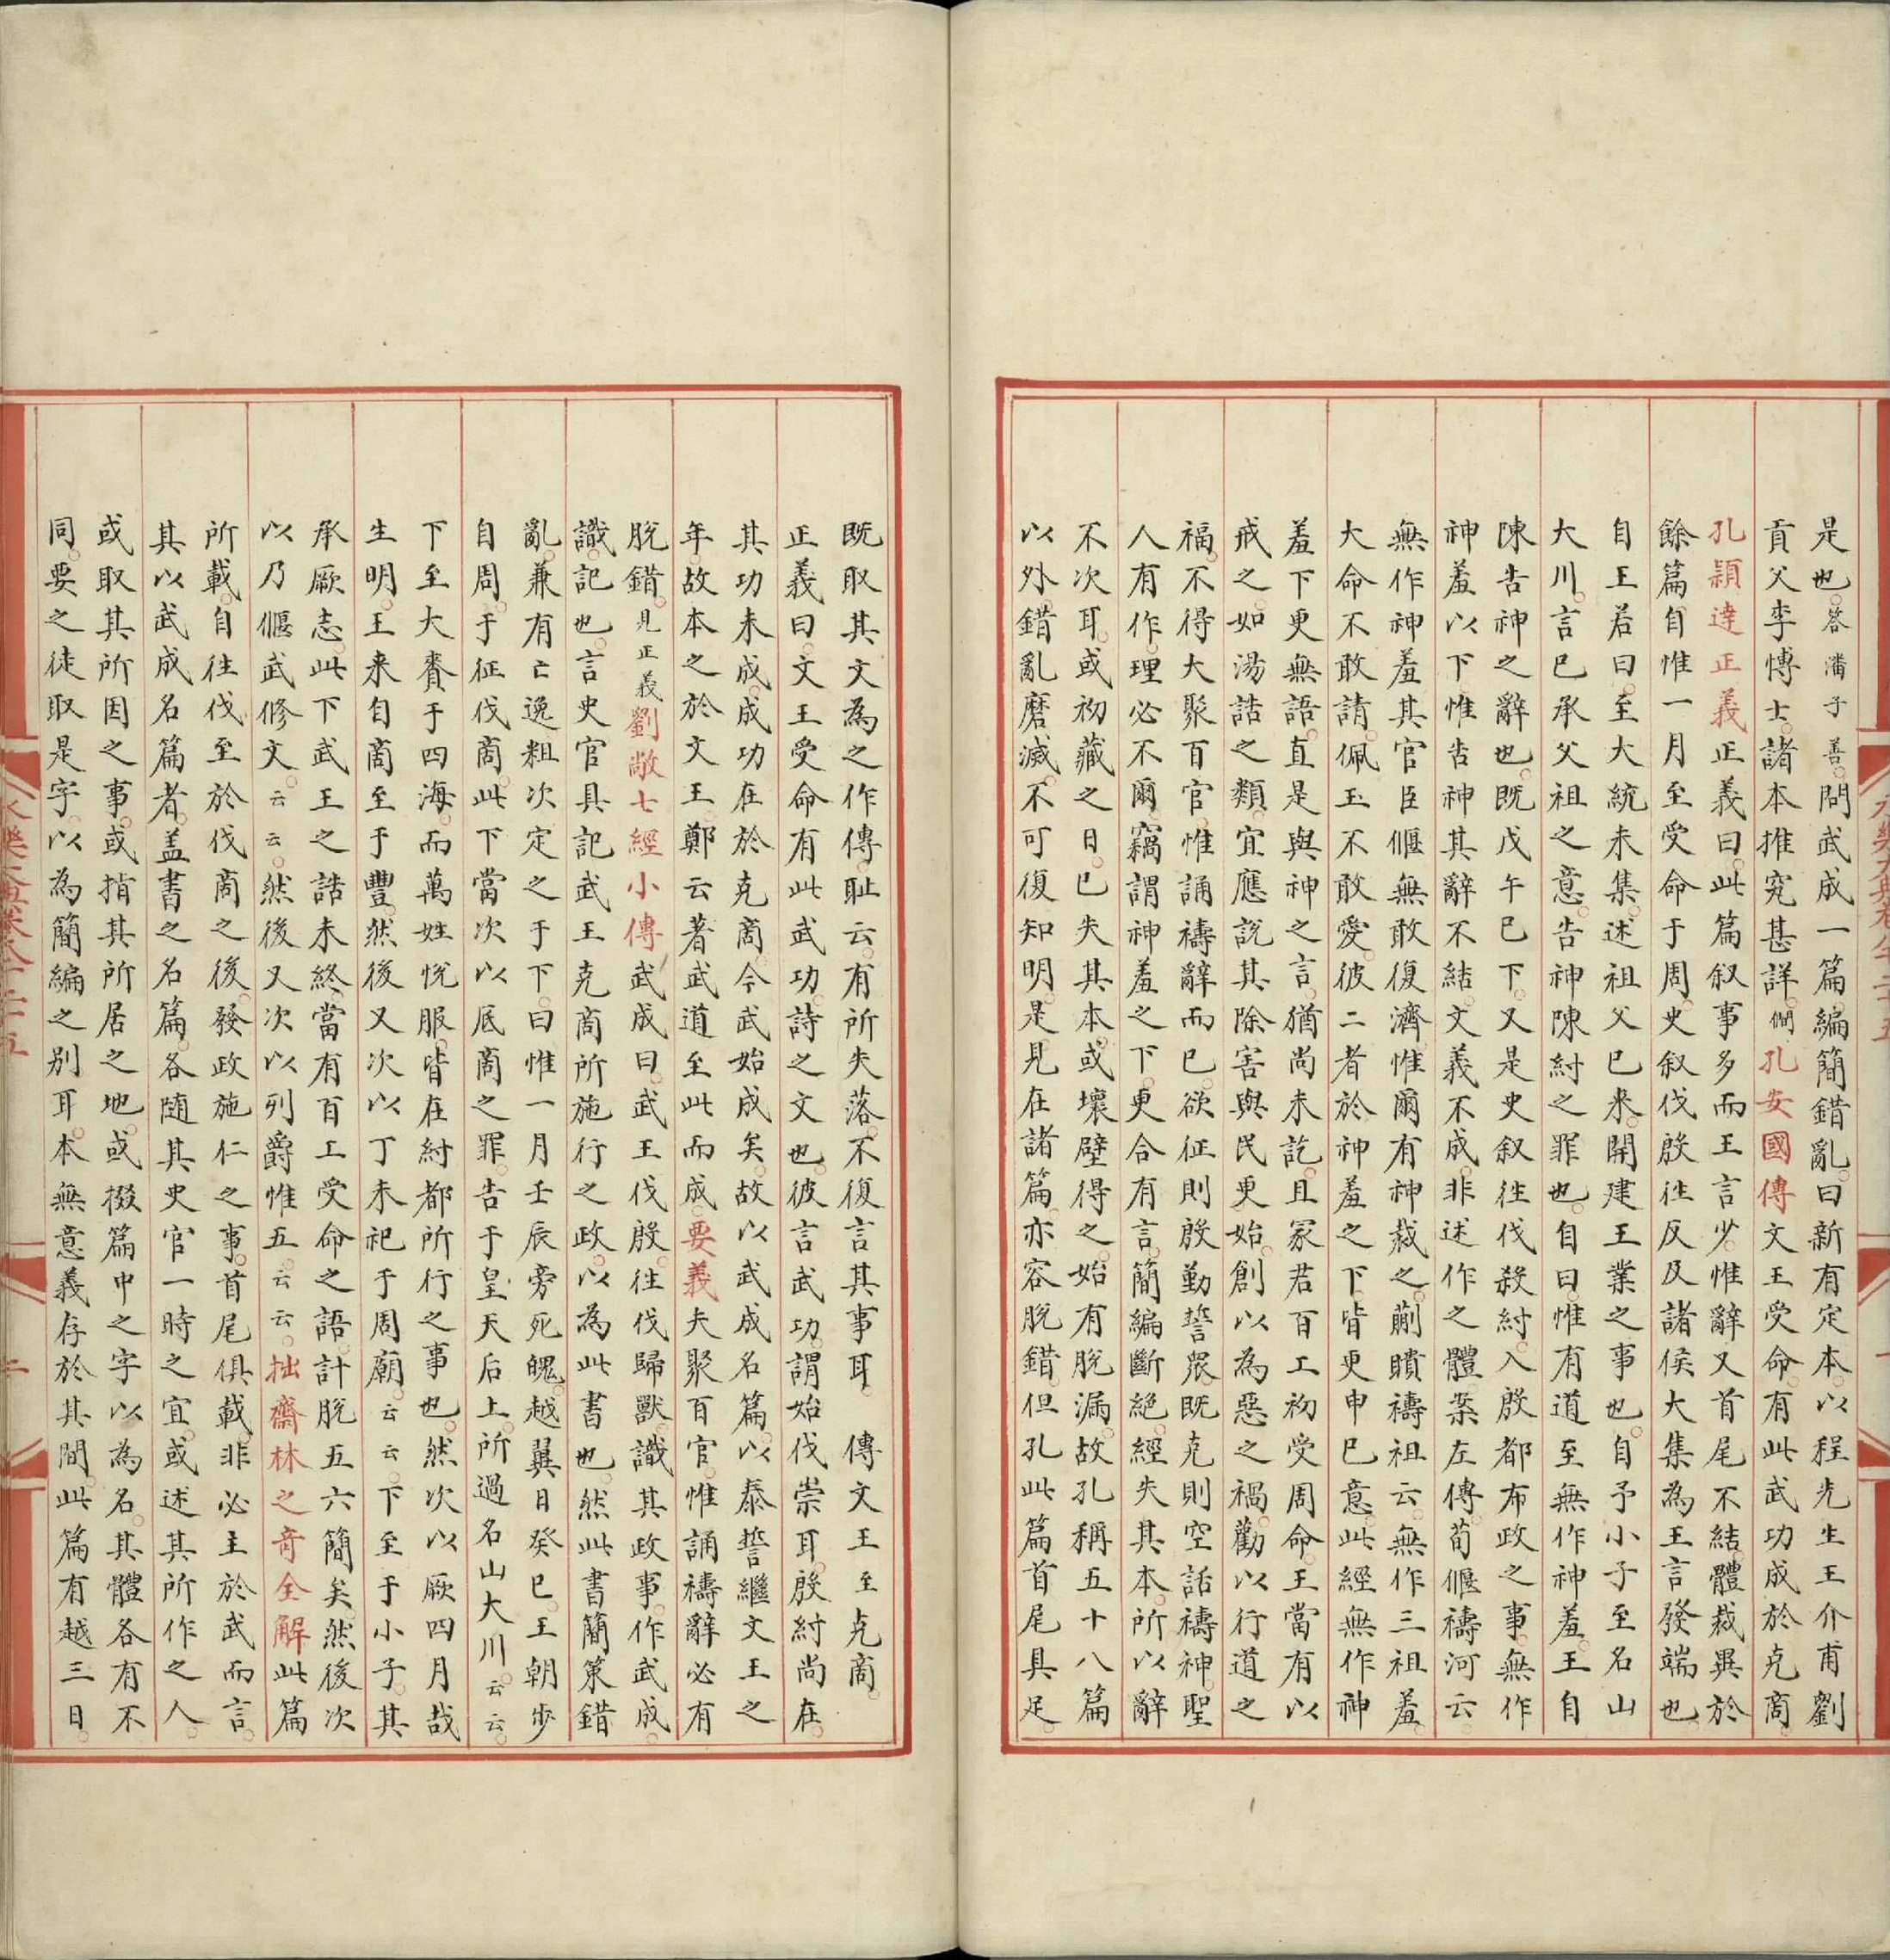 是也答潘子善問武成一篇編簡錯亂曰新有定本以程先生王介甫劉
貢父李博士諸本推究甚詳僩孔安國傳文王受命有此武功成於克商
孔穎達正義正義曰此篇叙事多而王言少惟辭又首尾不結體裁異於
餘篇自惟一月至受命于周史叙伐殷往反及諸侯大集為王言發端也
自王若曰至大統未集述祖父已来開建王業之事也自予小子至名山
大川言已承父祖之意告神陳紂之罪也自曰惟有道至無作神羞王自
陳告神之辭也既戊午已下又是史叙往伐殺紂入殷都布政之事無作
神羞以下惟告神其辭不結文義不成非述作之體案左傳荀偃禱河云
無作神羞其官臣偃無敢復濟惟爾有神裁之蒯聵禱祖云無作三祖羞
大命不敢請佩玉不敢愛彼二者於神羞之下皆更申已意此經無作神
羞下更無語直是與神之言猶尚未訖且冢君百工初受周命王當有以
戒之如湯誥之類宜應説其除害與民更始創以為惡之禍勸以行道之
福不得大聚百官惟誦禱辭而已欲征則殷勤誓眾既克則空話禱神聖
人有作理必不爾竊謂神羞之下更合有言簡編斷絕經失其本所以辭
不次耳或初藏之日已失其本或壞壁得之始有脱漏故孔稱五十八篇
以外錯亂磨滅不可復知明是見在諸篇亦容脱錯但孔此篇首尾具足
既取其文為之作傳耻云有所失落不復言其事耳 傳文王至克商
正義曰文王受命有此武功詩之文也彼言武功謂始伐崇耳殷紂尚在
其功未成成功在於克商今武始成矣故以武成名篇以泰誓繼文王之
年故本之於文王鄭云著武道至此而成要義夫聚百官惟誦禱辭必有
脱錯見正義劉敞七經小傳武成曰武王伐殷往伐歸獸識其政事作武成
識記也言史官具記武王克商所施行之政以為此書也然此書簡策錯
亂兼有亡逸粗次定之于下曰惟一月壬辰旁死魄越翼日癸巳王朝步
自周于征伐商此下當次以厎商之罪告于皇天后土所過名山大川云云
下至大賚于四海而萬姓悅服皆在紂都所行之事也然次以厥四月哉
生明王来自商至于豐然後又次以丁未祀于周廟云云下至于小子其
承厥志此下武王之誥未終當有百工受命之語計脱五六簡矣然後次
以乃偃武修文云云然後又次以列爵惟五云云拙齋林之奇全解此篇
所載自往伐至於伐商之後發政施仁之事首尾俱載非必主於武而言
其以武成名篇者盖書之名篇各随其史官一時之宜或述其所作之人
或取其所因之事或指其所居之地或掇篇中之字以為名其體各有不
同要之徒取是字以為簡編之别耳本無意義存於其間此篇有越三日